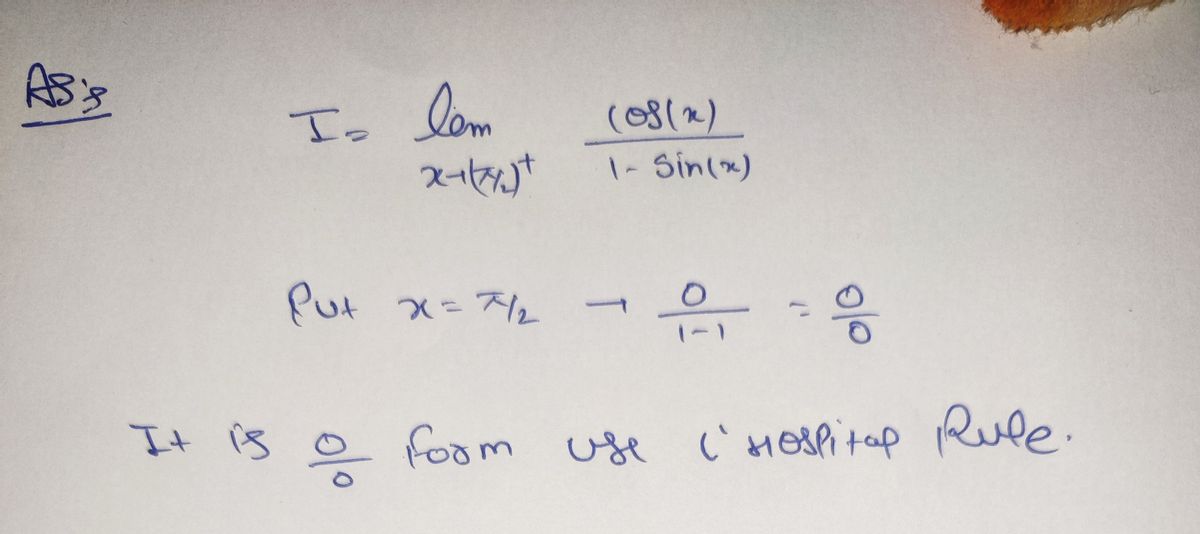 AS:
I = lim cos(x) / 1 - sin(x)
x→(π/2)+
Put x = π/2 → 0 / 1-1 = 0/0
It is 0/0 form use L' Hospital Rule.